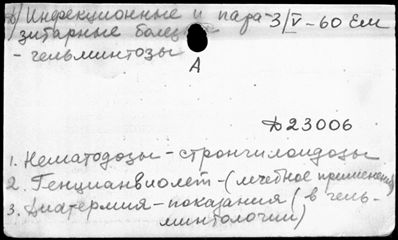 б) Инфекционные и пара- 3/V-60 Ем
зитарные болез
- гельминтозы
А
Д23006
1. Нематодозы - стронгилоидозы
2. Генцианвиолет - (лечебное применение)
3. Диатермия - показания (в гель-
минтологии)